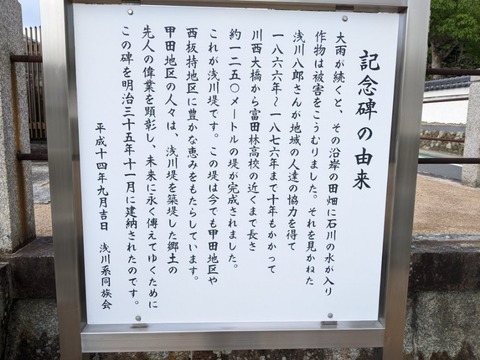 記念碑の由来
大雨が続くと、その沿岸の田畑に石川の水が入り
作物は被害をこうむりました。それを見かねた
浅川八郎さんが地域の人達の協力を得て
一八六六年～一八七六年まで十年もかかって
川西大橋から富田林高校の近くまで長さ
約一二五〇メートルの堤が完成されました。
これが浅川堤です。この堤は今でも甲田地区や
西板持地区に豊かな恵みをもたらしています。
甲田地区の人々は、浅川堤を築堤した郷土の
先人の偉業を顕彰し、未来に永く傳えてゆくために
この碑を明治三十五年十一月に建納されたのです。
平成十四年九月吉日　浅川系同族会